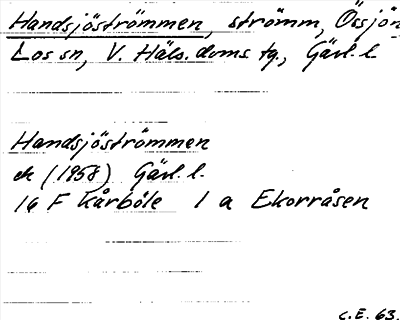 Handsjöströmmen, strömm, Össjön
Los sn, V. Häls. doms. tg., Gävl. l.
Handsjöströmmen
ek (1958) Gävl. l.
16 F Kårböle 1 a Ekorråsen
C.E. 63.